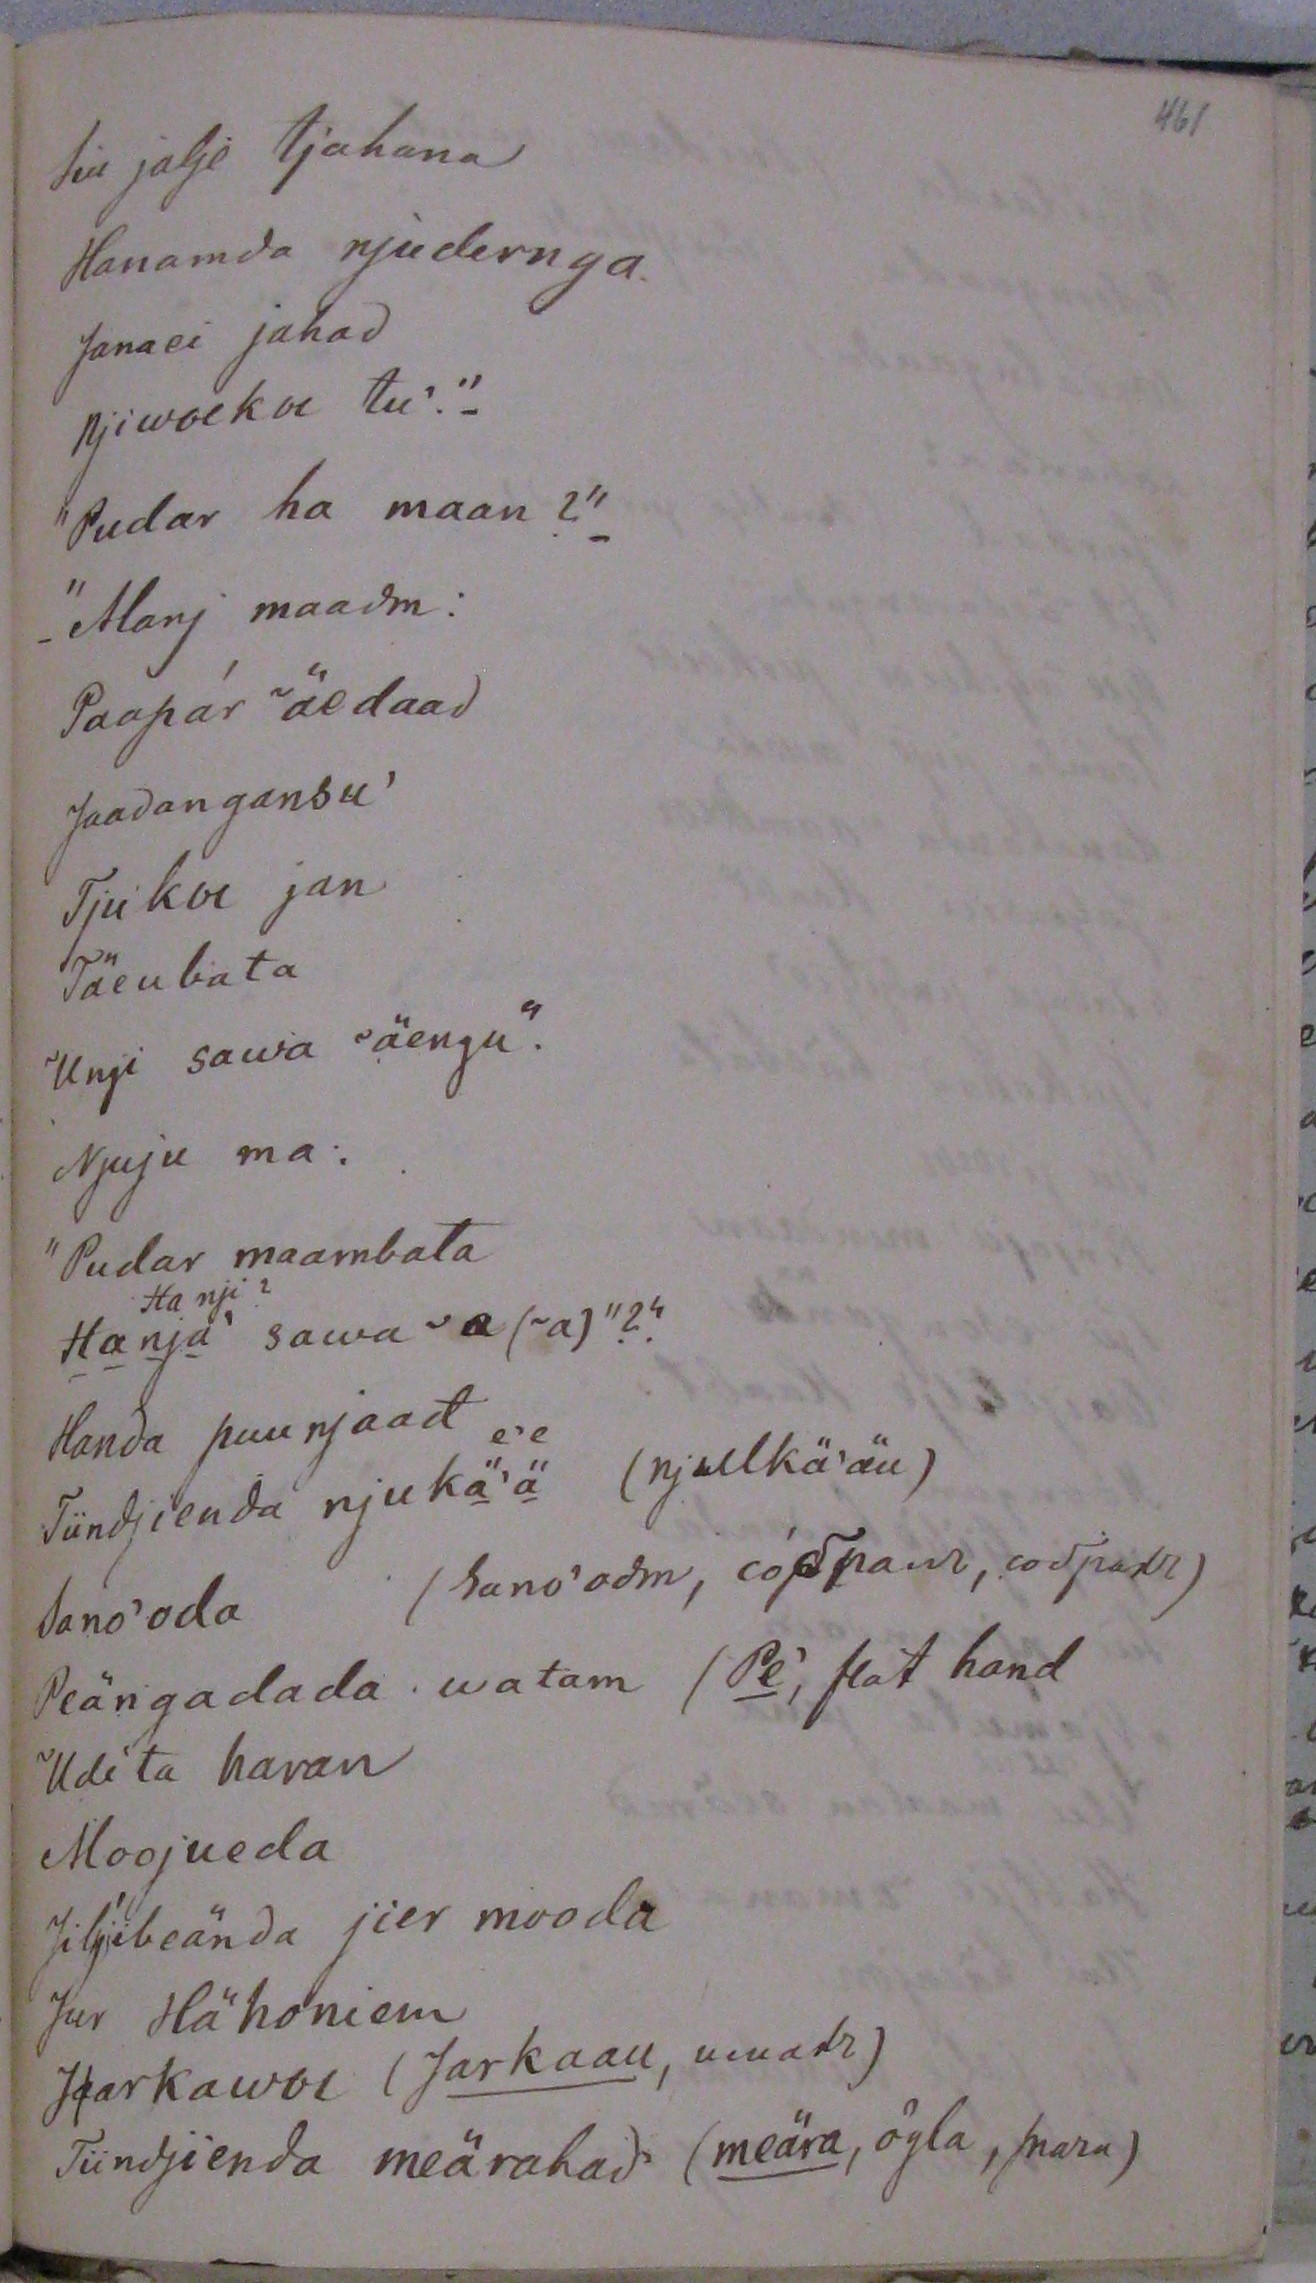 461
Siu jalje tjahana
Hanamda njudernga.
Janaei jahad
Njiwoekoe tu'."
"Pudar ha maan?"
"Manj maadm:
Paapár ˜äedaad
Jaadangansu'
Tjukoe jan
Täeubata
˜Ungi sawa ˜äengu".
Njuju ma:
"Pudar maambata
Hanji?
Hanja' sawa ˜a (˜a)"?"
Handa puunjaad
e'e
Tündjienda njukä'ä (njulkä'äu)
Sano'oda (Sano'odm,
Peängadada watam (Pe', flat hand
˜Udita haran
Moojueda
Jiljibeända jier mooda
Jur Hähoniem
Jarkawoe (Jarkaau, имать)
Tündjienda meärahad (meära, ögla, )